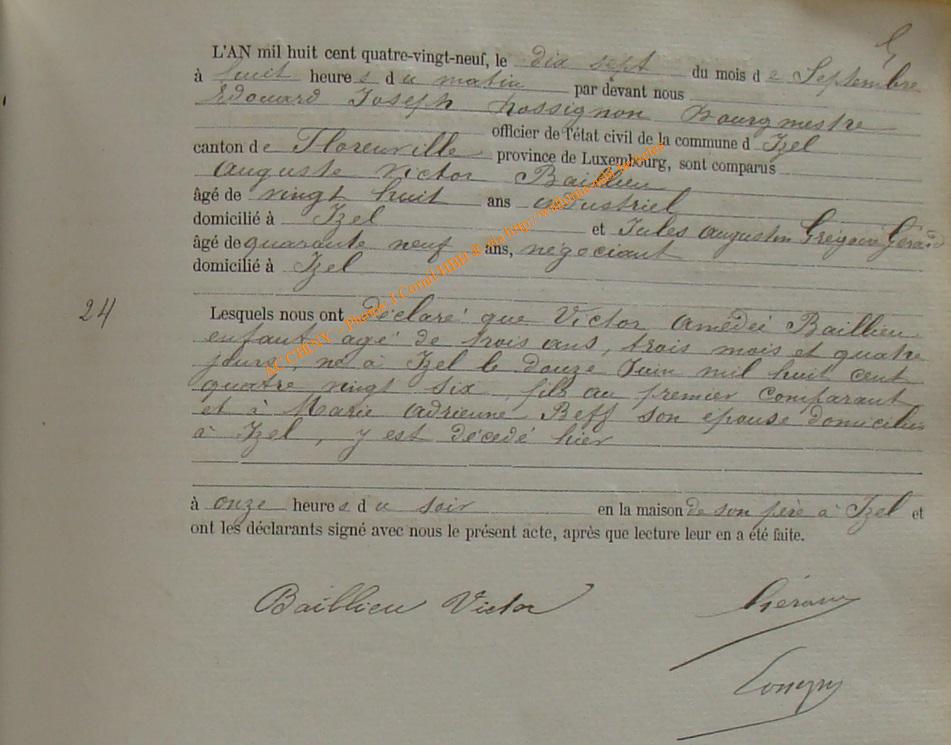 L'AN mil huit cent quatre-vingt-neuf, le dix sept du mois de Septembre
à huit heures du matin par devant nous
Edouard Joseph Rossignon Bourgmestre
officier de l'état civil de la commune d Izel
canton de Florenville province de Luxembourg, sont comparus
Auguste Victor Baillieu
âgé de vingt huit ans industriel
domicilié à Izel et Jules Augustin Grégoire Gérard
âgé de quarante neuf ans, négociant
domicilié à Izel
24
Lesquels nous ont déclaré que Victor Amédée Baillieu
enfant, agé de trois ans, trois mois et quatre
jours, né à Izel le douze Juin mil huit cent
quatre vingt six, fils au premier comparant
et à Marie Adrienne Beff son épouse domiciliés
à Izel, y est décedé hier
à onze heures du soir en la maison de son père à Izel et
ont les déclarants signé avec nous le présent acte, après que lecture leur en a été faite.
Baillieu Victor Gérard